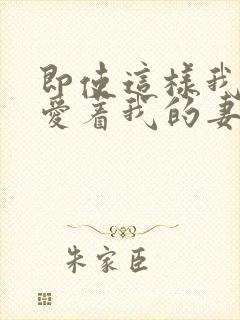 即使這樣我
愛着我的妻
朱家臣